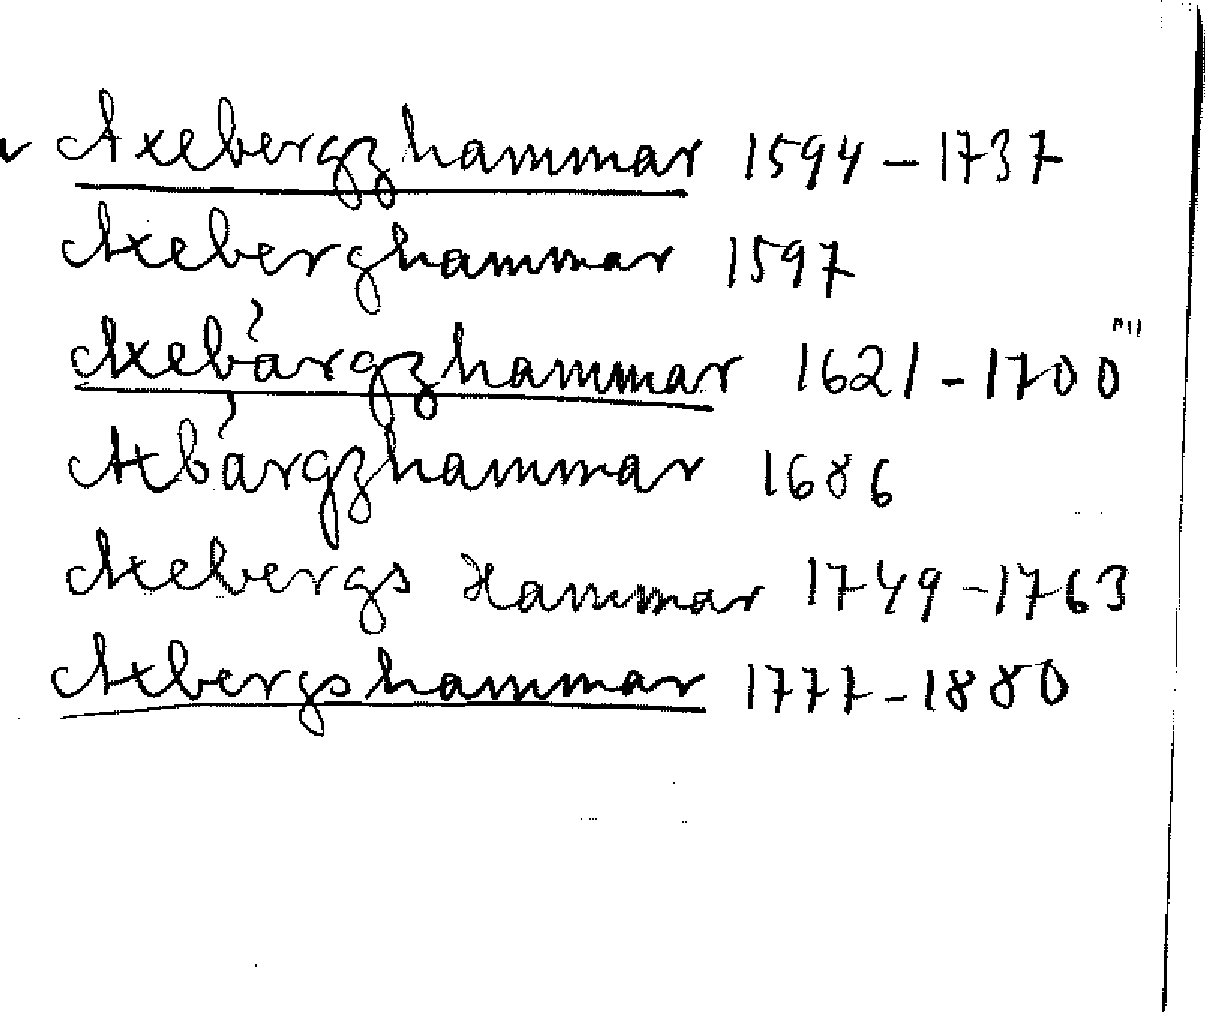 Axebergzhammar 1594-1737
Axeberghammar 1597
Axebårgzhammar 1621-1700"" 
Axbårgzhammar 1686
Axebergs Hammar 1749-1763
Axbergshammar 1777-1880